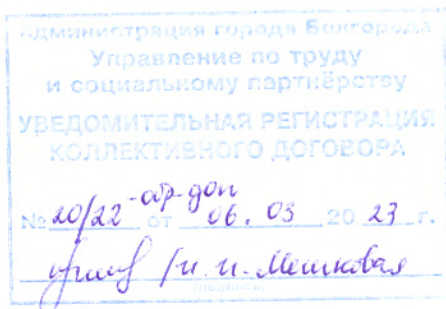 Администрация города Белгорода
Управление по труду
и социальному партнёрству
УВЕДОМИТЕЛЬНАЯ РЕГИСТРАЦИЯ
КОЛЛЕКТИВНОГО ДОГОВОРА
№ 20/22-обр-доп от 06.03 20 23 г.
/И.И. Мешковая
(подпись)